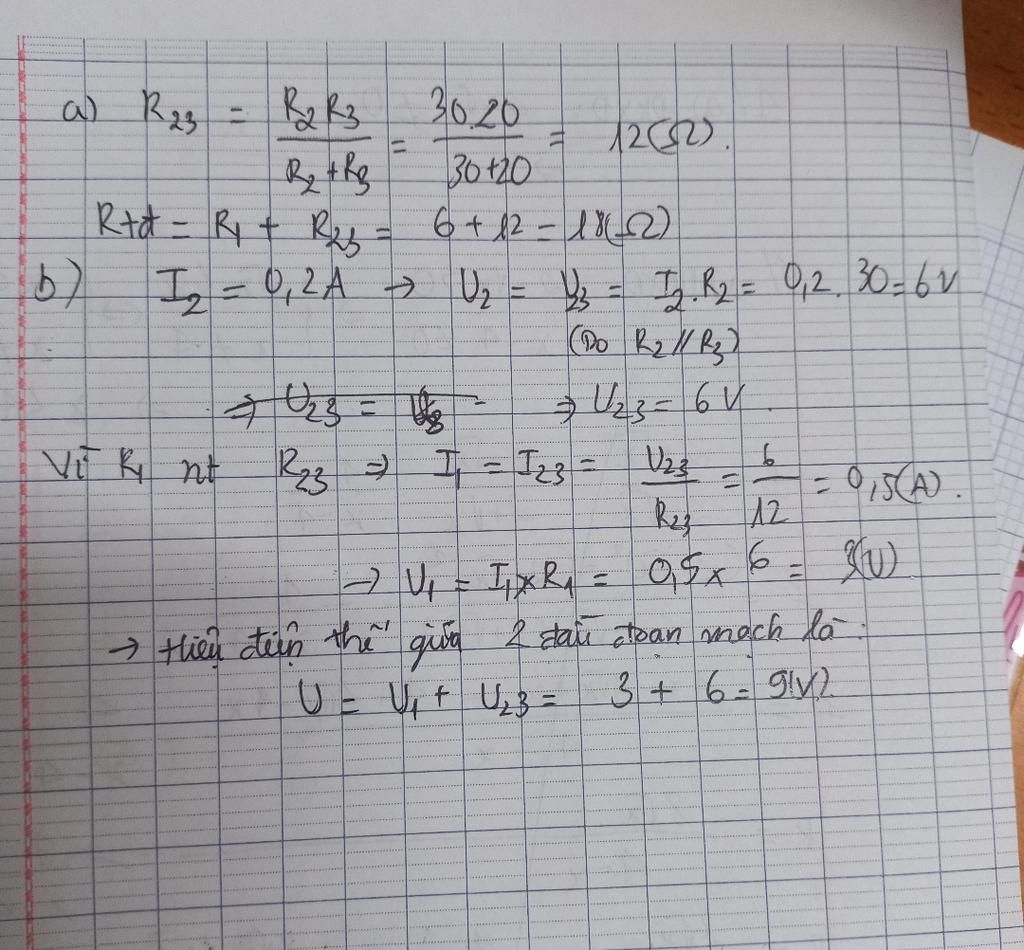 a) R23 = R2R3 / R2+R3 = 30.20 / 30+20 = 12(Ω).
Rtđ = R1 + R23 = 6 + 12 = 18(Ω)
b) I2 = 0,2A → U2 = U3 = I2.R2 = 0,2. 30 = 6V
(Do R2 // R3)
⇒ U23 = U3 ⇒ U23 = 6V.
Vì R1 nt R23 ⇒ I1 = I23 = U23 / R23 = 6 / 12 = 0,5(A).
→ U1 = I1 x R1 = 0,5 x 6 = 3(V)
→ Hiệu điện thế giữa 2 đầu đoạn mạch là:
U = U1 + U23 = 3 + 6 = 9(V)